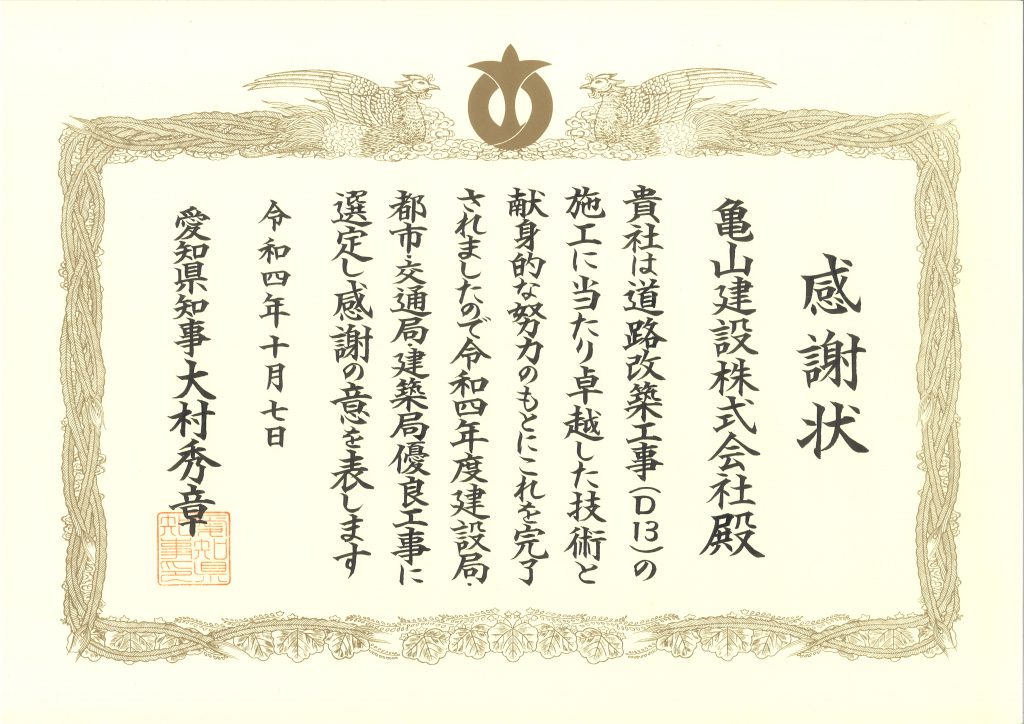 感謝状
亀山建設株式会社殿
貴社は道路改築工事(D13)の
施工に当たり卓越した技術と
献身的な努力のもとにこれを完了
されましたので令和四年度建設局・
都市・交通局・建築局優良工事に
選定し感謝の意を表します
令和四年十月七日
愛知県知事大村秀章
愛知県
知事之印